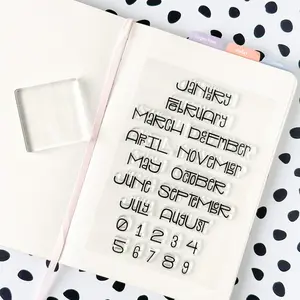 JANUARY
FEBRUARY
MARCH DECEMBER
APRIL NOVEMBER
MAY OCTOBER
JUNE SEPTEMBER
JULY AUGUST
0 1 2 3 4
5 6 7 8 9